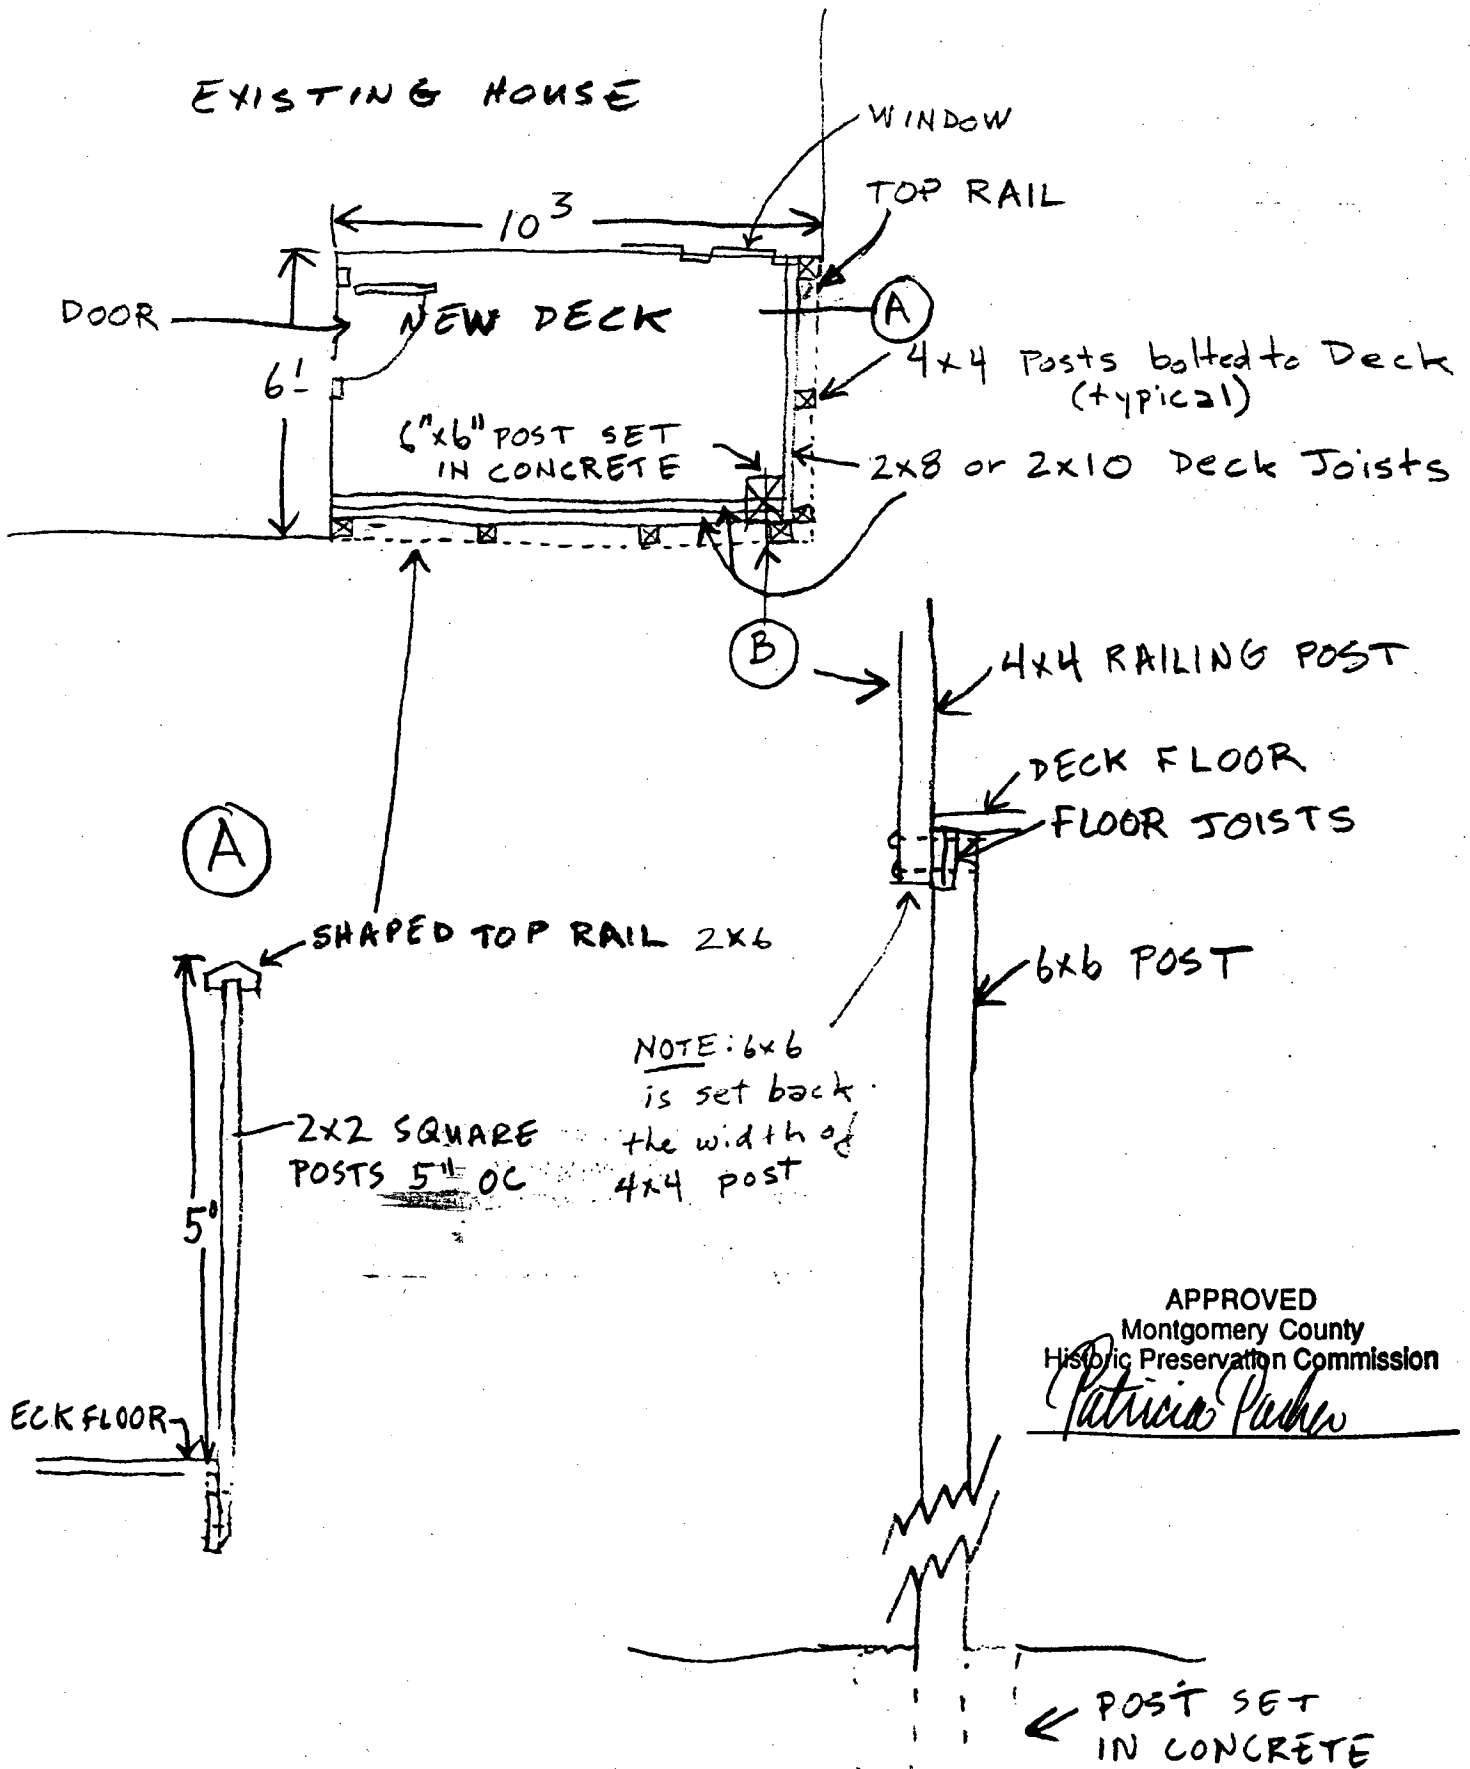 EXISTING HOUSE
WINDOW
TOP RAIL
10³
DOOR
NEW DECK
A
6'
4x4 Posts bolted to Deck
(typical)
6"x6" POST SET
IN CONCRETE
2x8 or 2x10 Deck Joists
B
4x4 RAILING POST
DECK FLOOR
FLOOR JOISTS
A
SHAPED TOP RAIL 2x6
6x6 POST
NOTE: 6x6
is set back
the width of
4x4 post
2x2 SQUARE
POSTS 5" OC
5'
APPROVED
Montgomery County
Historic Preservation Commission
Patricia Parker
ECK FLOOR
POST SET
IN CONCRETE